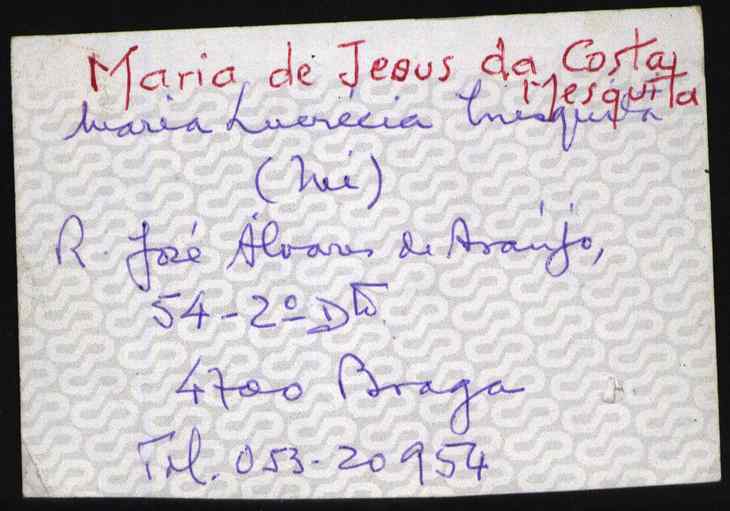 Maria de Jesus da Costa
Mesquita
Maria Lucrécia Mesquita
(Mi)
R. José Álvares de Araújo,
54-2º Dtº
4700 Braga
Tel. 053-20954